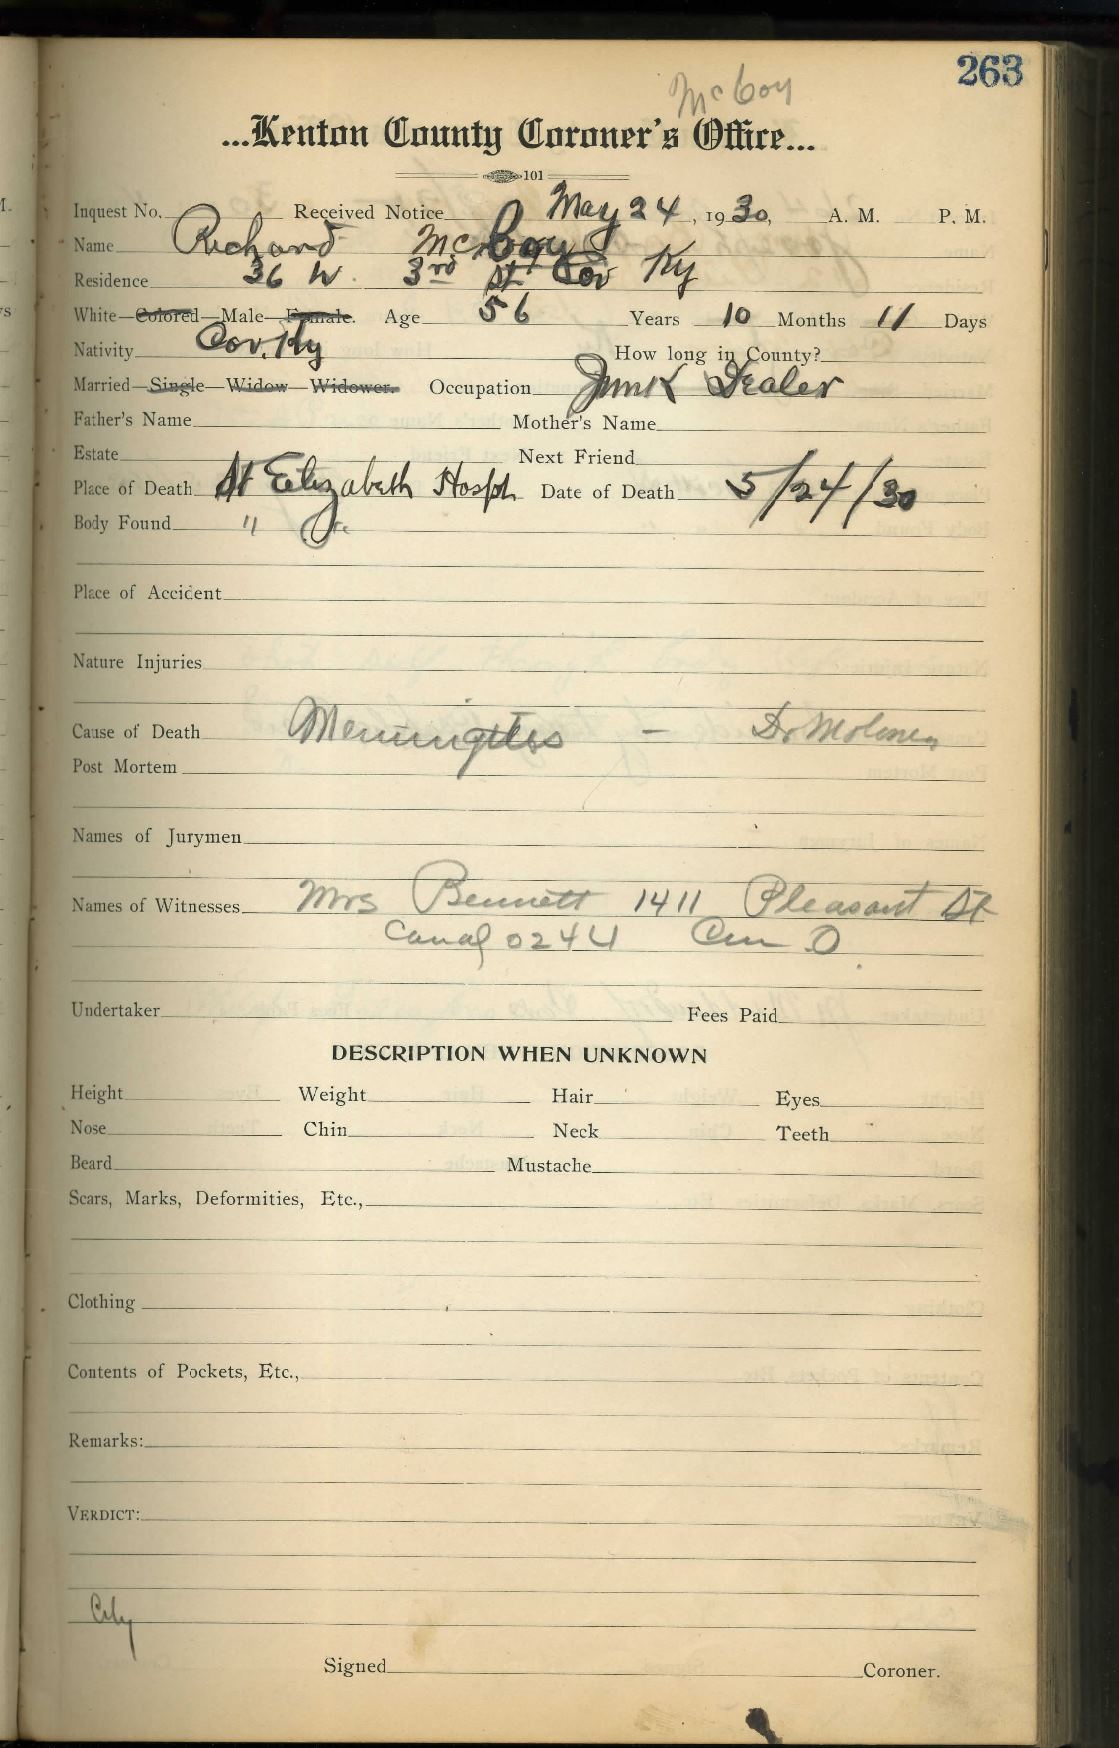 263
McCoy
...Kenton County Coroner's Office...
101
Inquest No. Received Notice May 24, 1930, A. M. P. M.
Name Richard McCoy
Residence 36 W. 3rd St Cov Ky
White—Colored—Male—Female. Age 56 Years 10 Months 11 Days
Nativity Cov. Ky How long in County?
Married—Single—Widow—Widower. Occupation Junk Dealer
Father's Name Mother's Name
Estate Next Friend
Place of Death St Elizabeth Hosph Date of Death 5/24/30
Body Found "
Place of Accident
Nature Injuries
Cause of Death Meningitis — Dr
Post Mortem
Names of Jurymen
Names of Witnesses Mrs Bennett 1411 Pleasant St
Canal 0244 Cin O
Undertaker Fees Paid
DESCRIPTION WHEN UNKNOWN
Height Weight Hair Eyes
Nose Chin Neck Teeth
Beard Mustache
Scars, Marks, Deformities, Etc.,
Clothing
Contents of Pockets, Etc.,
Remarks:
VERDICT:
City
Signed Coroner.